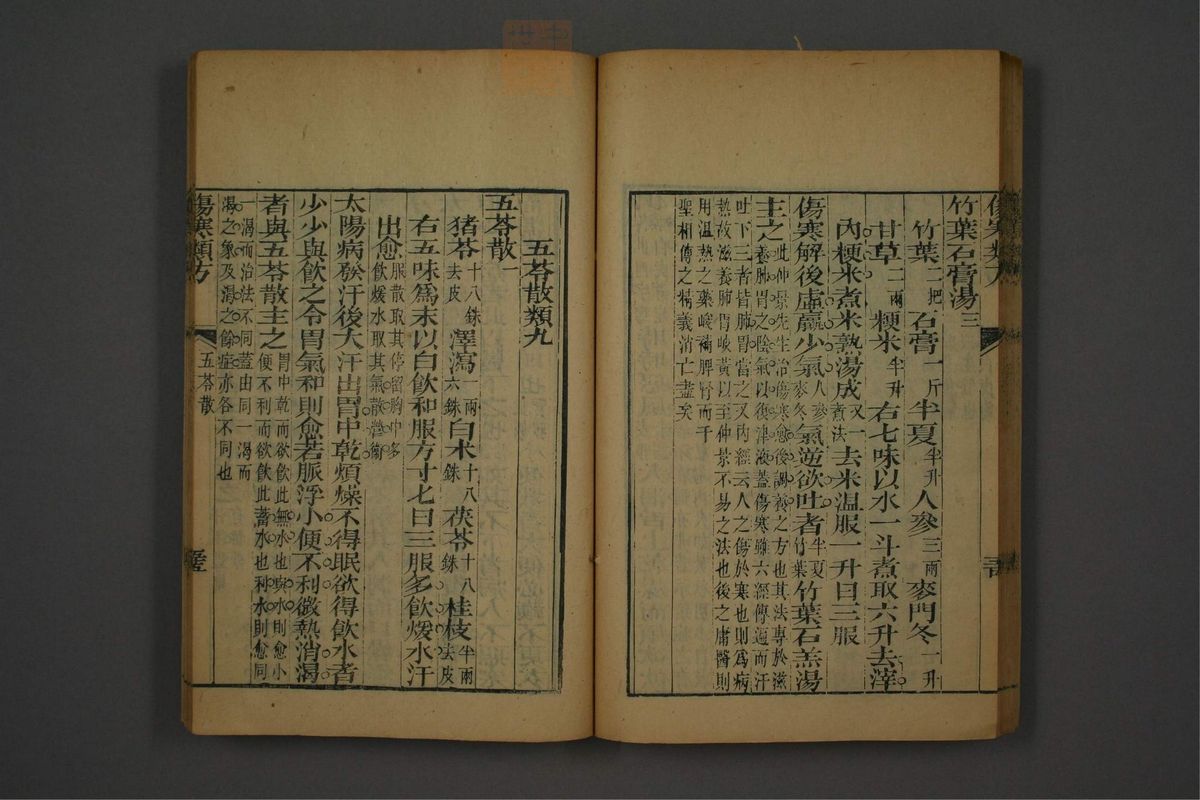 竹葉石膏湯三
竹葉二把 石膏一斤 半夏半升 人參三兩 麥門冬一升
甘草二兩 粳米半升 右七味以水一斗煮取六升去滓
內粳米煮米熟湯成又一煮法去米溫服一升日三服
傷寒解後虛羸少氣人參麥冬氣逆欲吐者半夏竹葉竹葉石羔湯
主之此仲景先生治傷寒愈後調養之方也其法專於滋
養肺胃之陰氣以復津液蓋傷寒雖六經傳遍而汗
吐下三者皆肺胃當之又內經云人之傷於寒也則為病
熱故滋養肺胃岐黃以至仲景不易之法也後之庸醫則
用溫熱之藥峻補脾腎而千
聖相傳之精義消亡盡矣
五苓散類九
五苓散一
猪苓十八銖去皮 澤瀉一兩六銖 白术十八銖 茯苓十八銖 桂枝半兩去皮
右五味為末以白飲和服方寸匕日三服多飲煖水汗
出愈服散取其停留胸中多
飲煖水取其氣散營衛
太陽病發汗後大汗出胃中乾煩燥不得眠欲得飲水者
少少與飲之令胃氣和則愈若脈浮小便不利微熱消渴
者與五苓散主之胃中乾而欲飲此無水也與水則愈小
便不利而欲飲此蓄水也利水則愈同
一渴而治法不同蓋由同一渴而
渴之象及渴之餘症亦各不同也
傷寒類方
五苓散